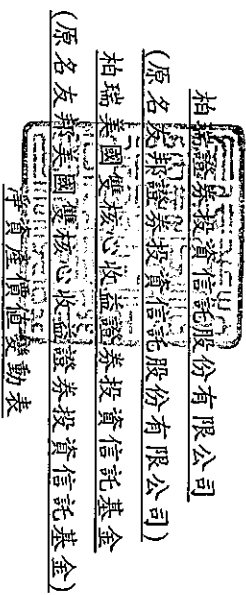 柏瑞證券投資信託股份有限公司
(原名友邦證券投資信託股份有限公司)
柏瑞美國雙核心收益證券投資信託基金
(原名友邦美國雙核心收益證券投資信託基金)
淨資產價值變動表